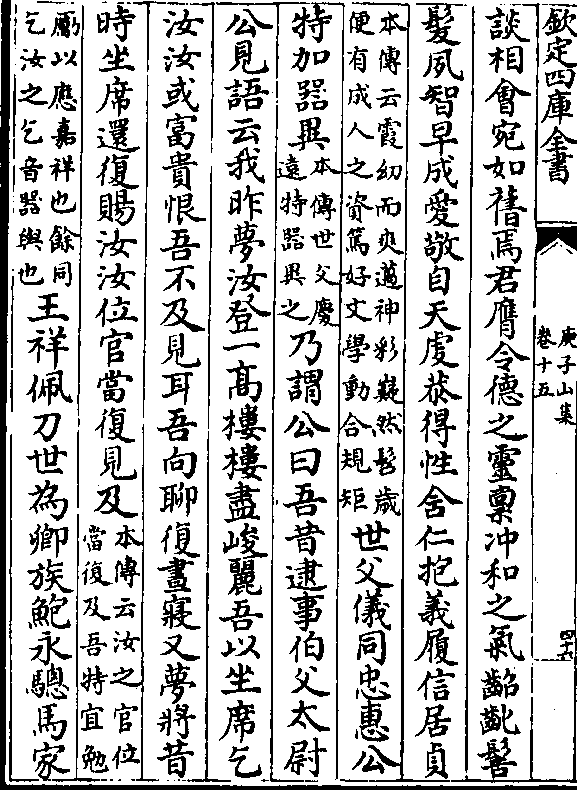 欽定四庫全書
庾子山集
卷十五
四十六
談相會宛如舊焉君膺令德之靈稟沖和之氣齠齔鬌
髮夙智早成愛敬自天虔恭得性含仁抱義履信居貞
本傳云霞幼而爽邁神彩嶷然髫歲
便有成人之資篤好文學動合規矩
世父儀同忠惠公
特加器異
本傳世父慶
遠特器異之
乃謂公曰吾昔逮事伯父太尉
公見語云我昨夢汝登一高樓樓盡峻麗吾以坐席乞
汝汝或富貴恨吾不及見耳吾向聊復晝寢又夢將昔
時坐席還復賜汝汝位官當復見及
本傳云汝之官位
當復及吾特宜勉
勵以應嘉祥也餘同
乞汝之乞音器與也
王祥佩刀世為卿族鮑永驄馬家